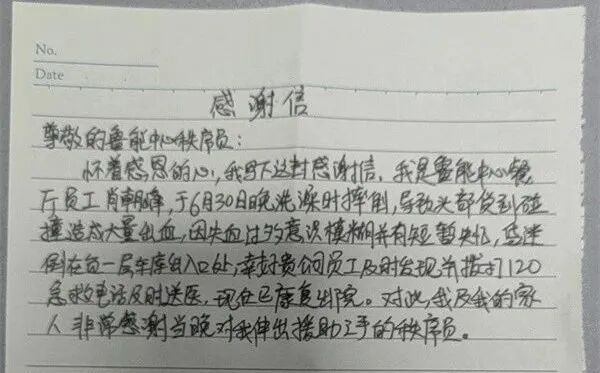 No.
Date
感谢信
尊敬的鲁能中心秩序员：
怀着感恩的心，我写下这封感谢信。我是鲁能中心餐
厅员工肖朝峰，于6月30日晚洗澡时摔倒，导致头部受到碰
撞造成大量出血，因失血过多意识模糊并有短暂失忆，
倒在负一层车库出入口处，幸好贵公司员工及时发现并拨打120
急救电话及时送医，现在已康复出院。对此，我及我的家
人非常感谢当晚对我伸出援助之手的秩序员。